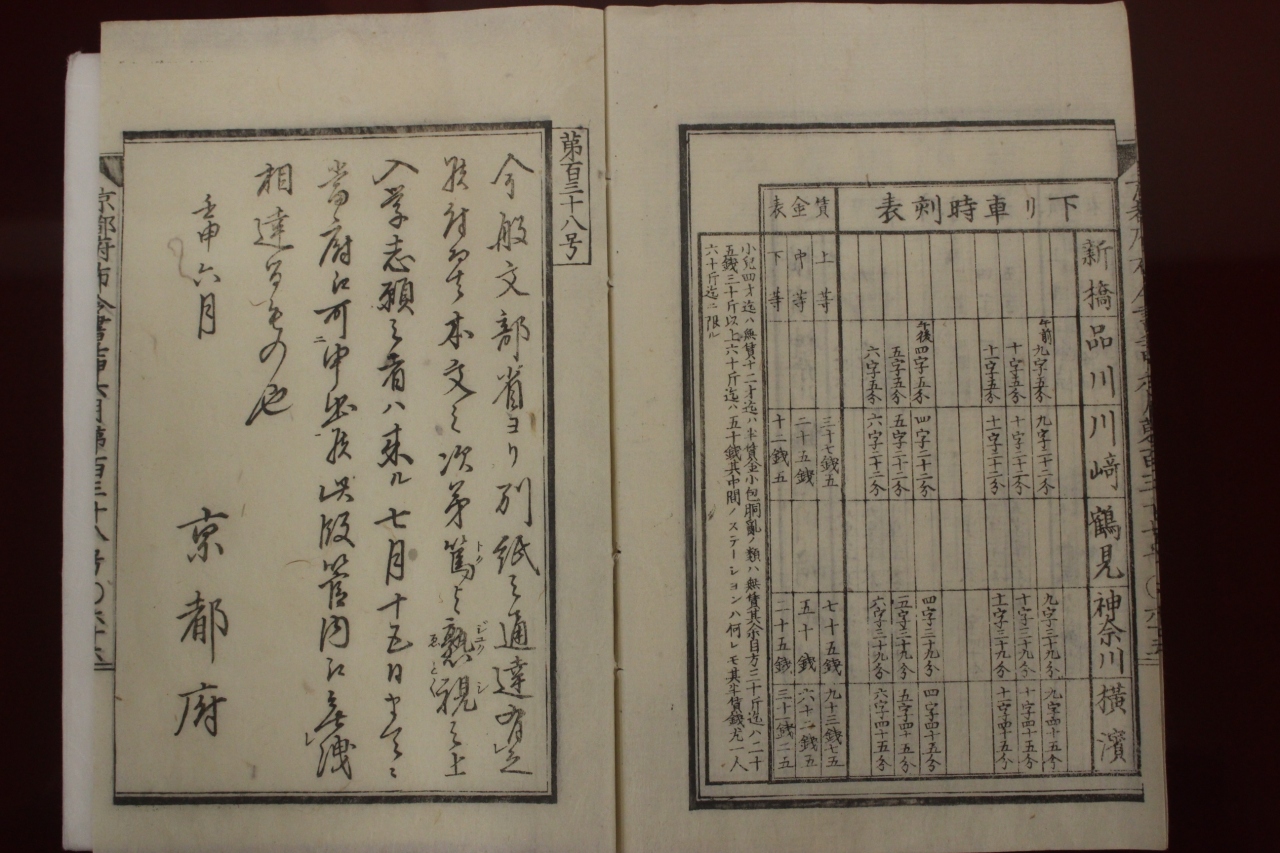 下リ車時刻表
賃金表
新橋
品川
川﨑
鶴見
神奈川
横濱
午前九字五分
九字二十二分
九字三十九分
九字四十五分
十字五分
十字二十二分
十字三十九分
十字四十五分
十一字五分
十一字二十二分
十一字三十九分
十一字四十五分
午後四字五分
四字二十二分
四字三十九分
四字四十五分
五字五分
五字二十二分
五字三十九分
五字四十五分
六字五分
六字二十二分
六字三十九分
六字四十五分
上等
三十七銭五
七十五銭
九十三銭七五
中等
二十五銭
五十銭
六十二銭五
下等
十二銭五
二十五銭
三十一銭二五
小兒四才迄ハ無賃十二才迄ハ半賃金小包胴亂ノ類ハ無賃其余目方三十斤迄ハ二十
五銭三十斤以上六十斤迄ハ五十銭其中間ノステーションハ何レモ其半賃銭尤一人
六十斤迄ニ限ル
第百三十八号
今般文部省ヨリ別紙之通達有之
候付而者本文之次第篤と熟視之上
トク
ジユクシ
入学志願之者ハ来ル七月十五日
當府江可申出候此段管内江無洩
相達するもの也
壬申六月
京都府